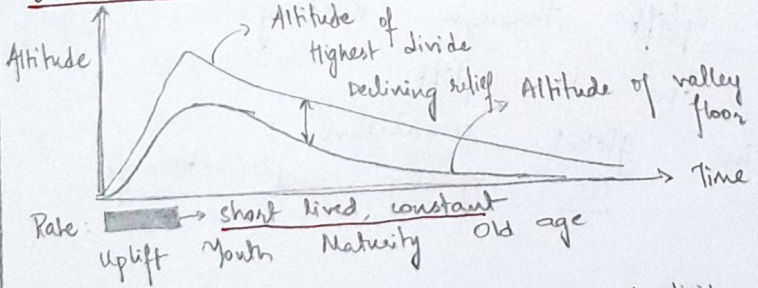 Altitude of
Highest divide
Altitude
Declining relief
Altitude of valley
floor
Time
Rate: short lived, constant
Uplift Youth Maturity Old age